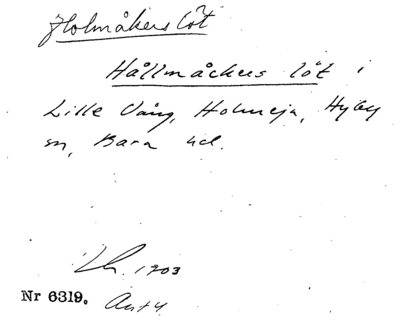 Holmåkers löt
Hållmåckers löt i
Lille Vång, Holmeja, Hyby
sn, Bara hd.
Lh. 1703
Nr 6319. Ant 4